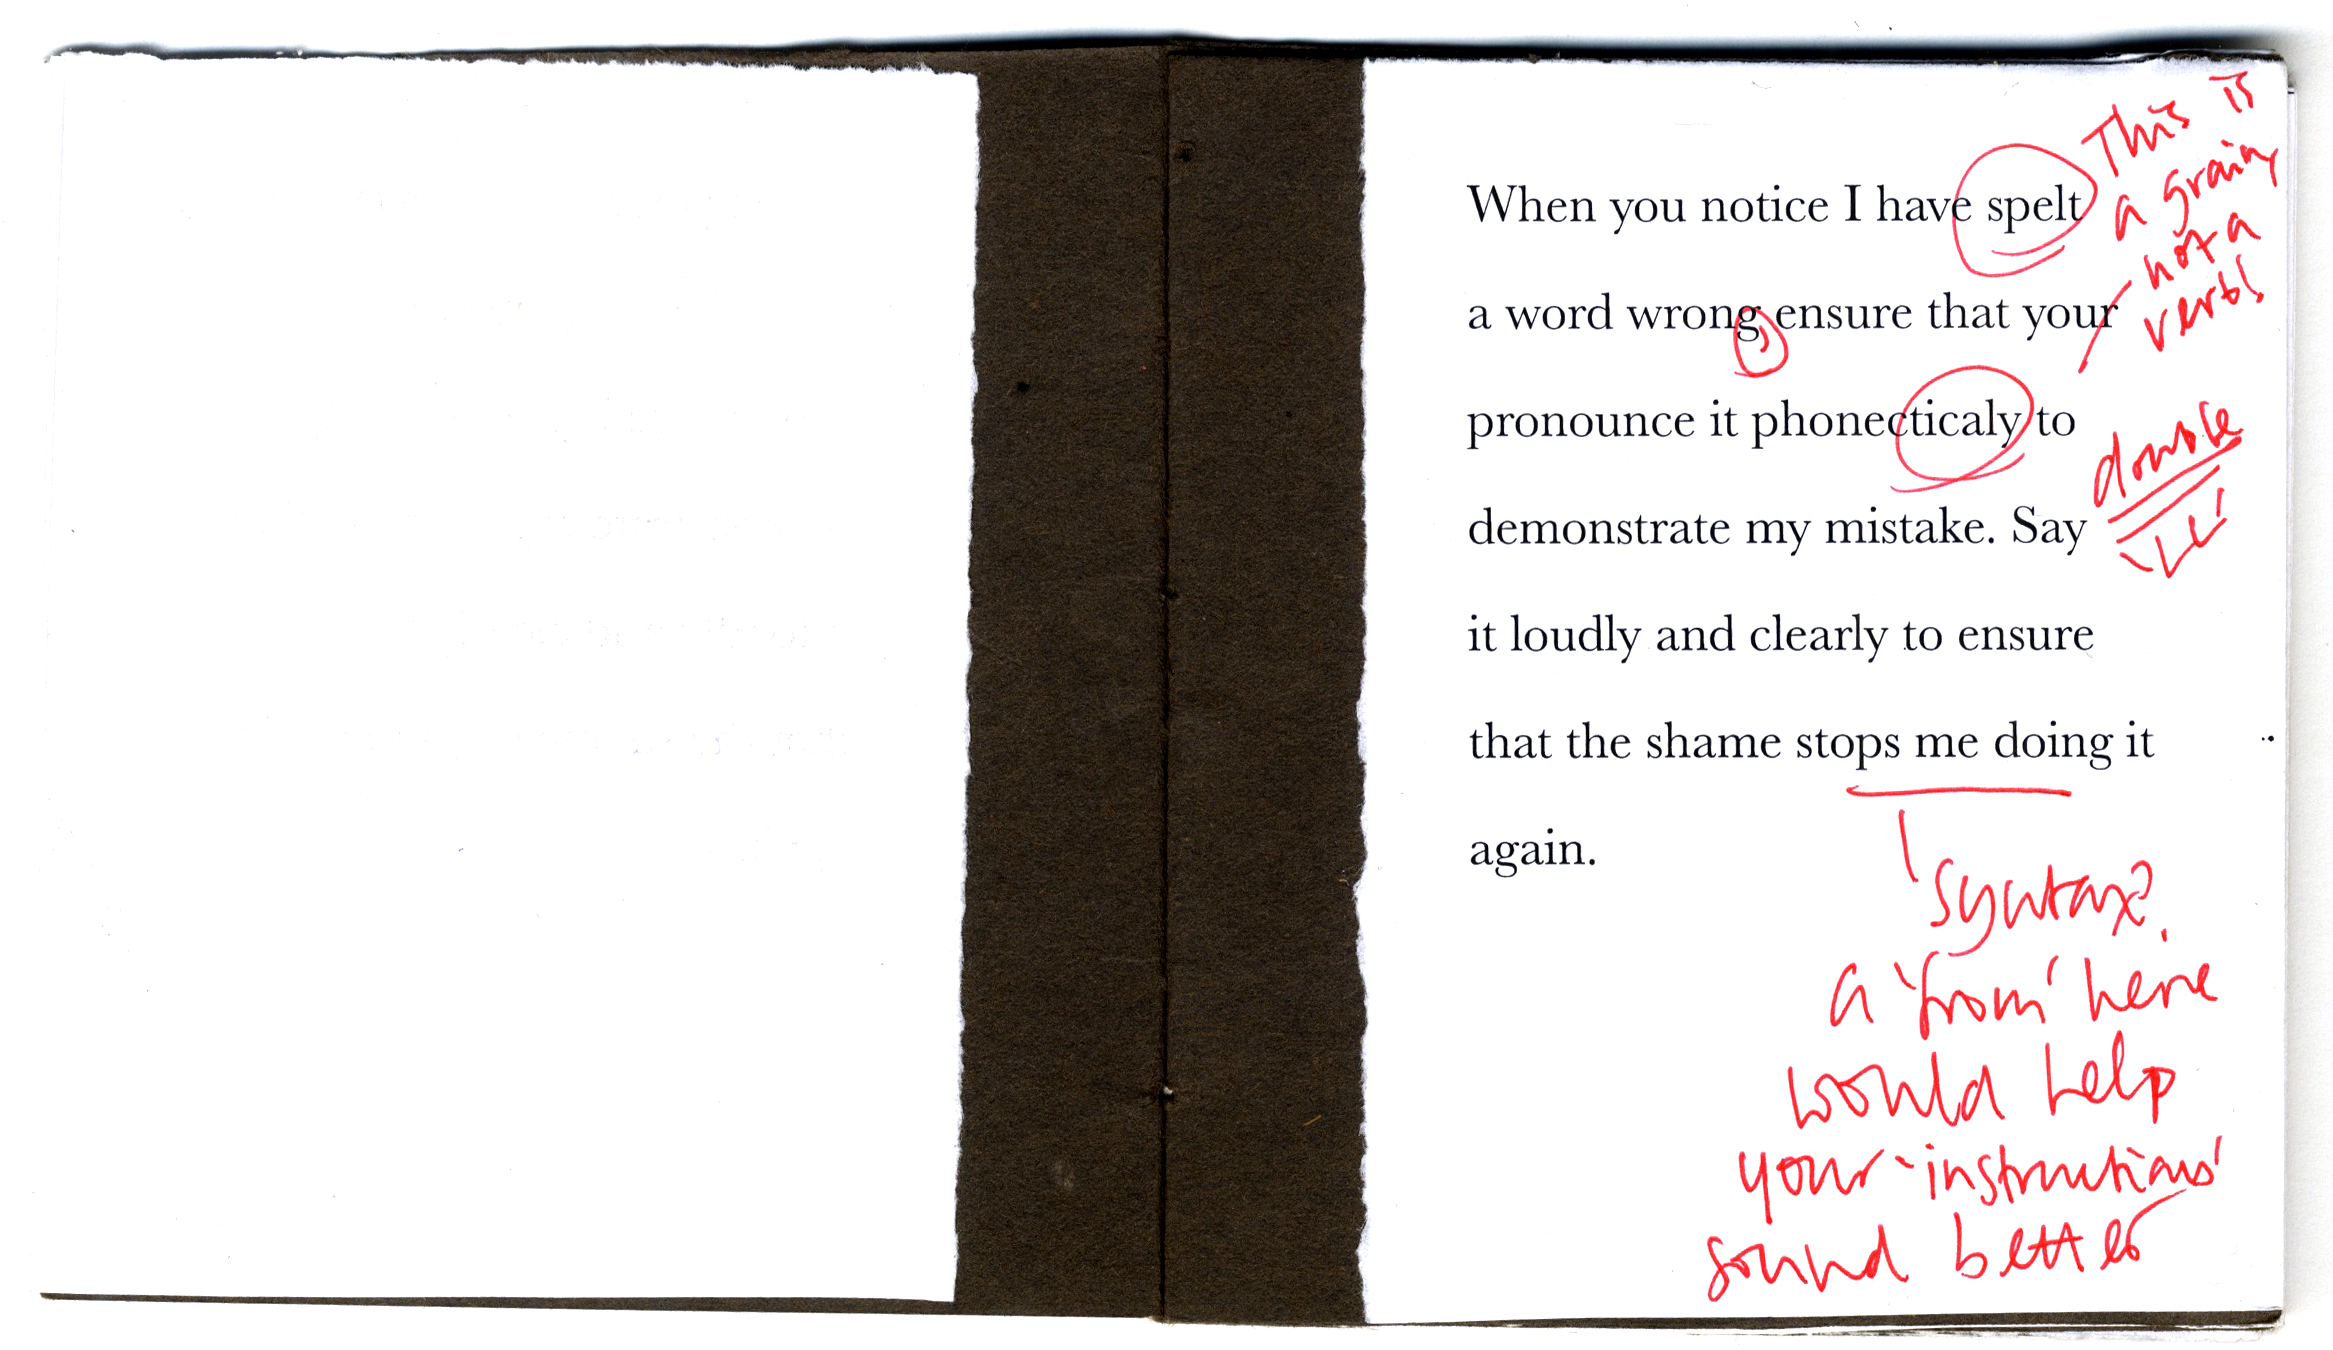 When you notice I have spelt
a word wrong, ensure that your
pronounce it phonecticaly to
demonstrate my mistake. Say
it loudly and clearly to ensure
that the shame stops me doing it
again.
This is
a grain,
not a
verb!
double
'LL'
syntax?
a 'from' here
would help
your 'instructions'
sound better